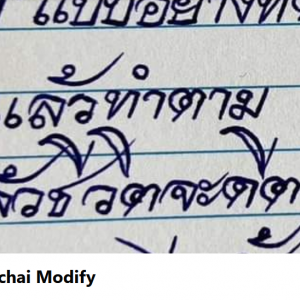 แบบอย่าง
แล้วทำตาม
ชีวิตจะดี
chai Modify